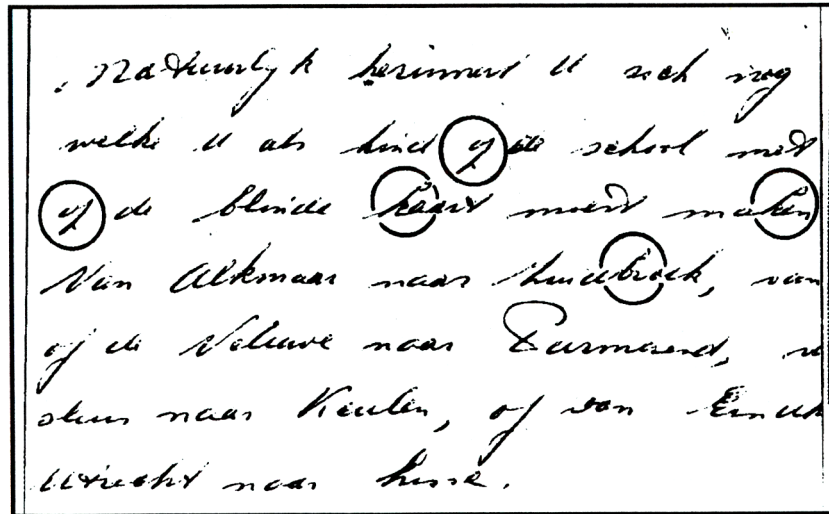 Natuurlijk herinnert U zich nog
welke U als kind op de school met
op de blinde kaart moest maken
Van Alkmaar naar broek, van
op de Veluwe naar Purmerend,
naar Keulen, of van
Utrecht naar